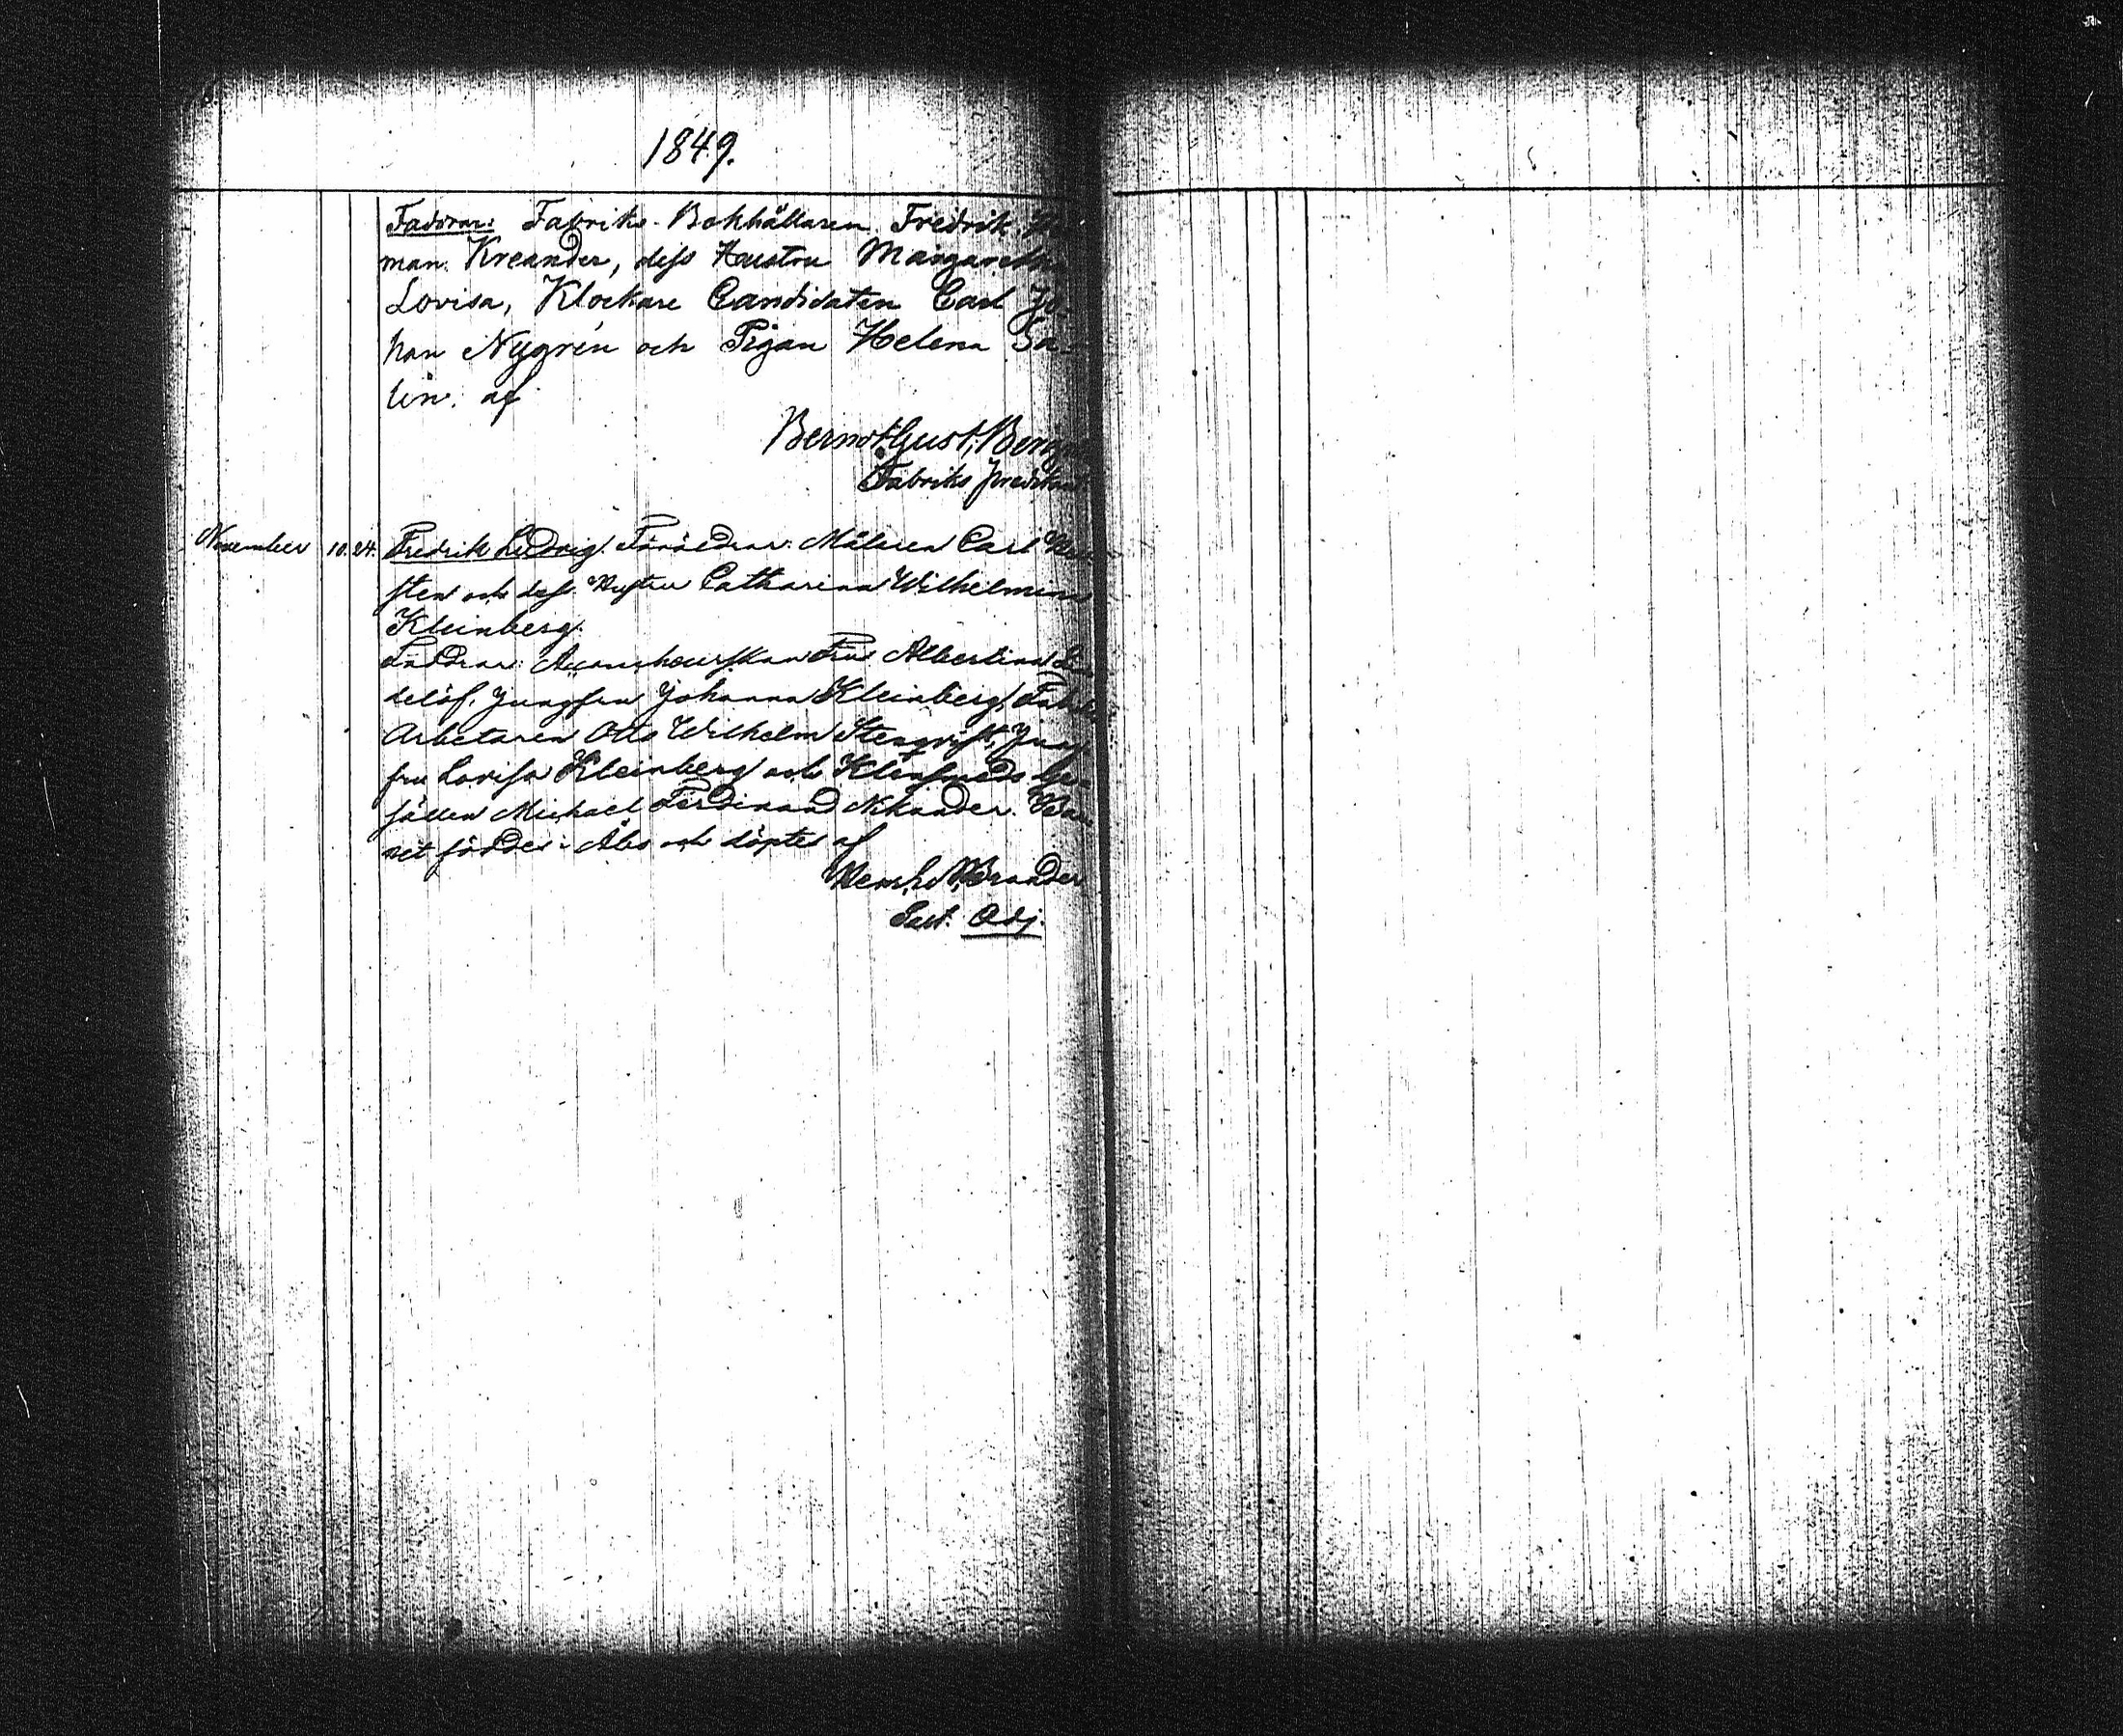 1849.
Faddrar: Fabriks-Bokhållaren Fredrik
man Kreander, dess Hustru Margaretha
Lovisa, Klockare Candidaten Carl Jo-
han Nygrén och Pigan Helena Sa-
lin. af
Berndt Gust.
Fabriks
November 10. 24. Fredrik Ludvig. Föräldrar: Målaren Carl
sten och dess Hustru Catharina Wilhelmina
Kleinberg.
Faddrar: Fru Albertina
delöf, Jungfru Johanna Kleinberg,
Arbetaren Otto Wilhelm Jung-
fru Lovisa Kleinberg och Klensmeds Ge-
sällen Michael Ferdinand Nikander. Bar-
net föddes i Åbo och döptes af
Brander
Past. Adj.